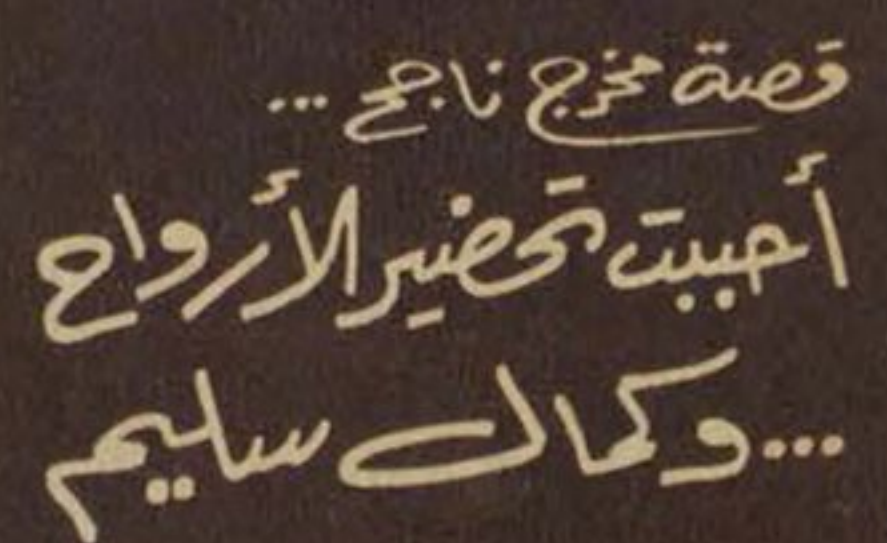 قصة مخرج ناجح ...
أحببت تحضير الأرواح
... وكمال سليم